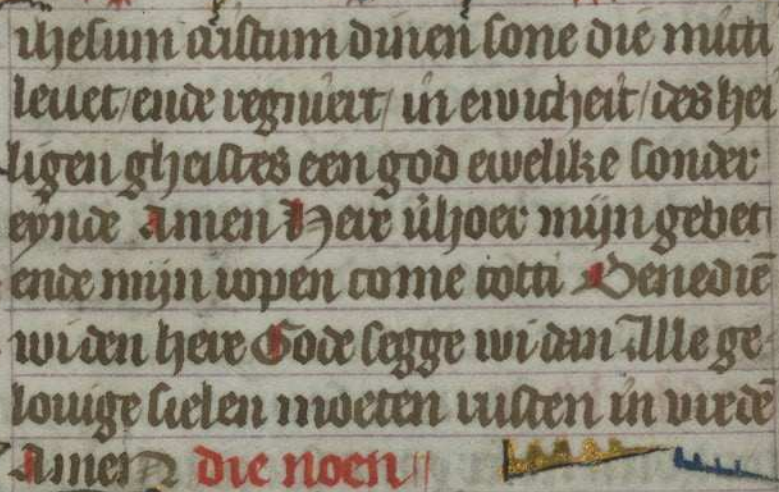 ihesum cristum dinen sone die mitti
leuet/ende regniert/in ewicheit/des hei
ligen gheistes een god ewelike sonder
eynde Amen Here v̄hoer mijn gebet
ende mijn ropen come totti Benediē
wi den here Gode segge wi danc Alle ge
louige sielen moeten rusten in vredē
Amen die noen